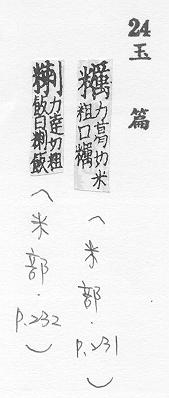 24 玉篇
糲 力高切米
粗曰糲
（米部．P.231）
力達切粗
飯曰飯
（米部．P.232）